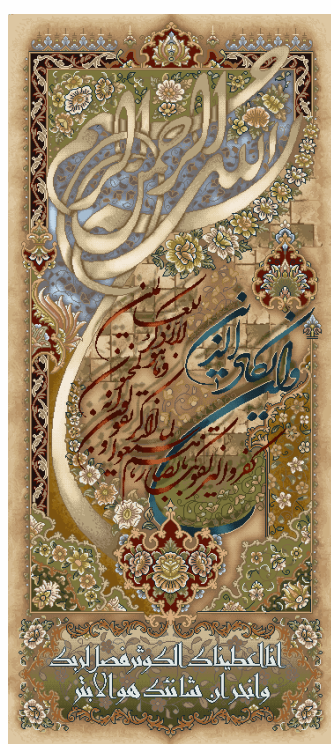 بسم الله الرحمن الرحيم
وان يكاد الذين
كفروا ليزلقونك بابصارهم
لما سمعوا الذكر و
يقولون انه
لمجنون
و ما هو
الا ذكر
للعالمين
انا اعطيناك الكوثر فصل لربك
وانحر ان شانئك هو الابتر